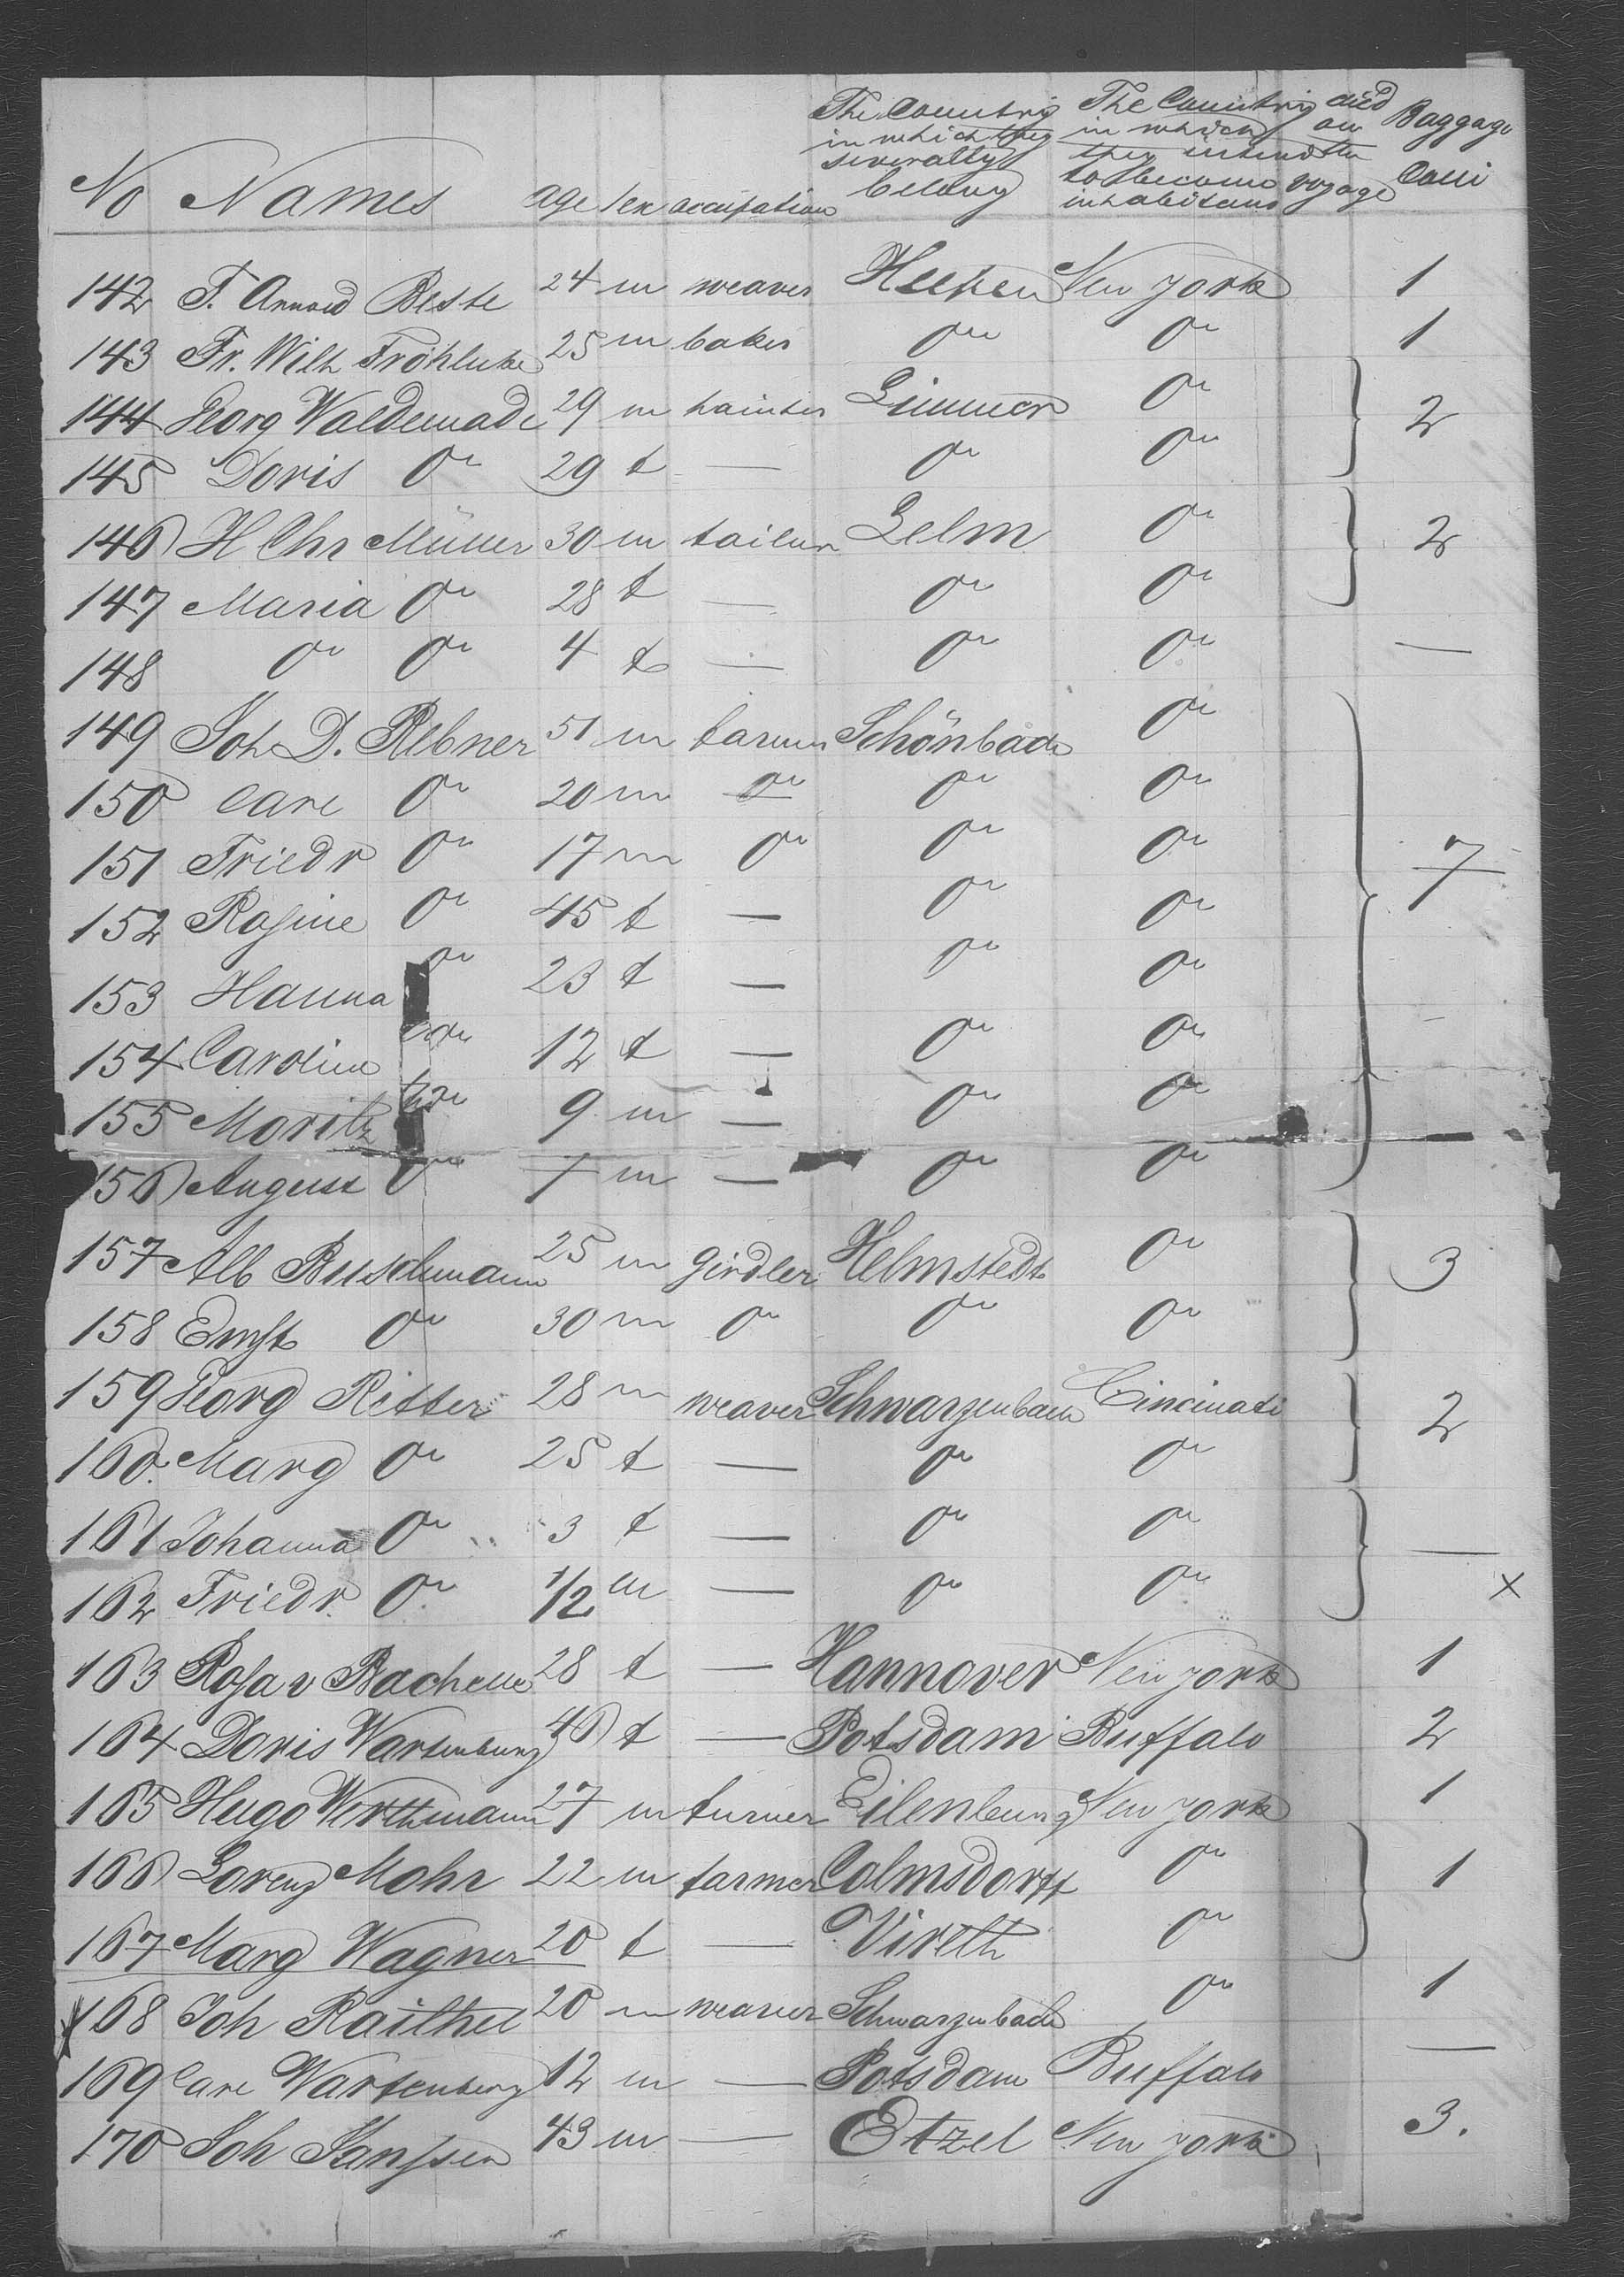 No Names age sex occupation The Country in which they severally belong The Country in which they intend to become inhabitans died on the voyage Baggage Colli
142 F. Arnold Beste 24 m weaver Heepen New York 1
143 Fr. Wilh Fröhlicke 25 m baker do do 1
144 Georg Waldemade 29 m painter Limmer do 2
145 Doris do 29 f — do do
146 H Chr Müller 30 m tailur Lelm do 2
147 Maria do 28 f — do do
148 do do 4 f — do do —
149 Joh D. Rebner 51 m farmer Schönbach do
150 Carl do 20 m do do do
151 Friedr do 17 m do do do 7
152 Rosine do 45 f — do do
153 Hanna do 23 f — do do
154 Caroline do 12 f — do do
155 Moritz do 9 m — do do
156 August do 7 m — do do
157 Alb Buschmann 25 m girdler Helmstedt do 3
158 Ernst do 30 m do do do
159 Georg Ritter 28 m weaver Schwarzenbach Cincinati 2
160. Marg do 25 f — do do
161 Johanna do 3 f — do do —
162 Friedr. do 1/2 m — do do x
163 Rosa v Bachelle 28 f — Hannover New York 1
164 Doris Wartenburg 46 f — Potsdam Buffalo 2
165 Hugo Worthmann 27 m turner Eilenburg New York 1
166 Lorenz Mohr 22 m farmer Colmsdorff do 1
167 Marg Wagner 20 f — Vireth do
168 Joh Raithel 20 m weaver Schwarzenbach do 1
169 Carl Wartenberg 12 m — Potsdam Buffalo —
170 Joh Janssen 43 m — Etzel New York 3.